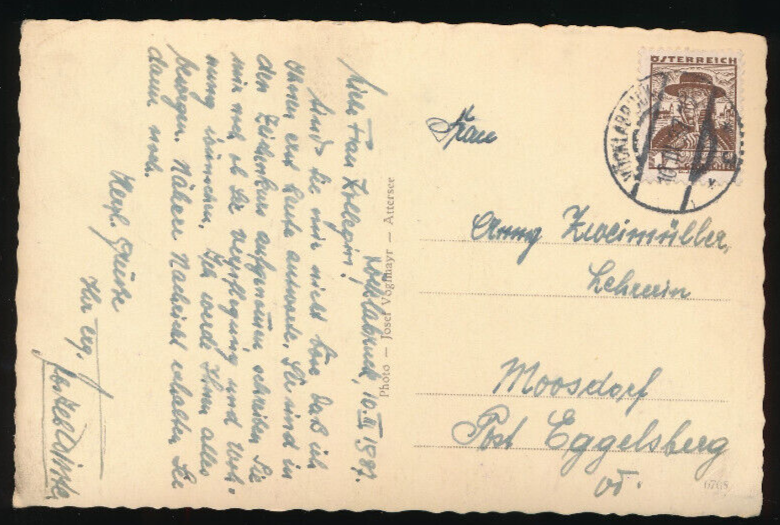 Vöcklabruck, 10. II 1937.
Liebe Frau Kollegin!
Sind Sie mir nicht böse daß ich
Ihnen erst heute antworte. Sie sind in
den Zeichenkurs aufgenommen, schreiben Sie
mir noch ob Sie Verpflegung und Woh-
nung wünschen. Ich werde Ihnen alles
besorgen. Nähere Nachricht erhalten Sie
dann noch.
Herzl. Grüße
Ihr erg.
Photo — Josef Voglmayr — Attersee
ÖSTERREICH
VÖCKLABRUCK
Frau
Anny Zweimüller,
Lehrerin
Moosdorf
Post Eggelsberg
OÖ.
6768